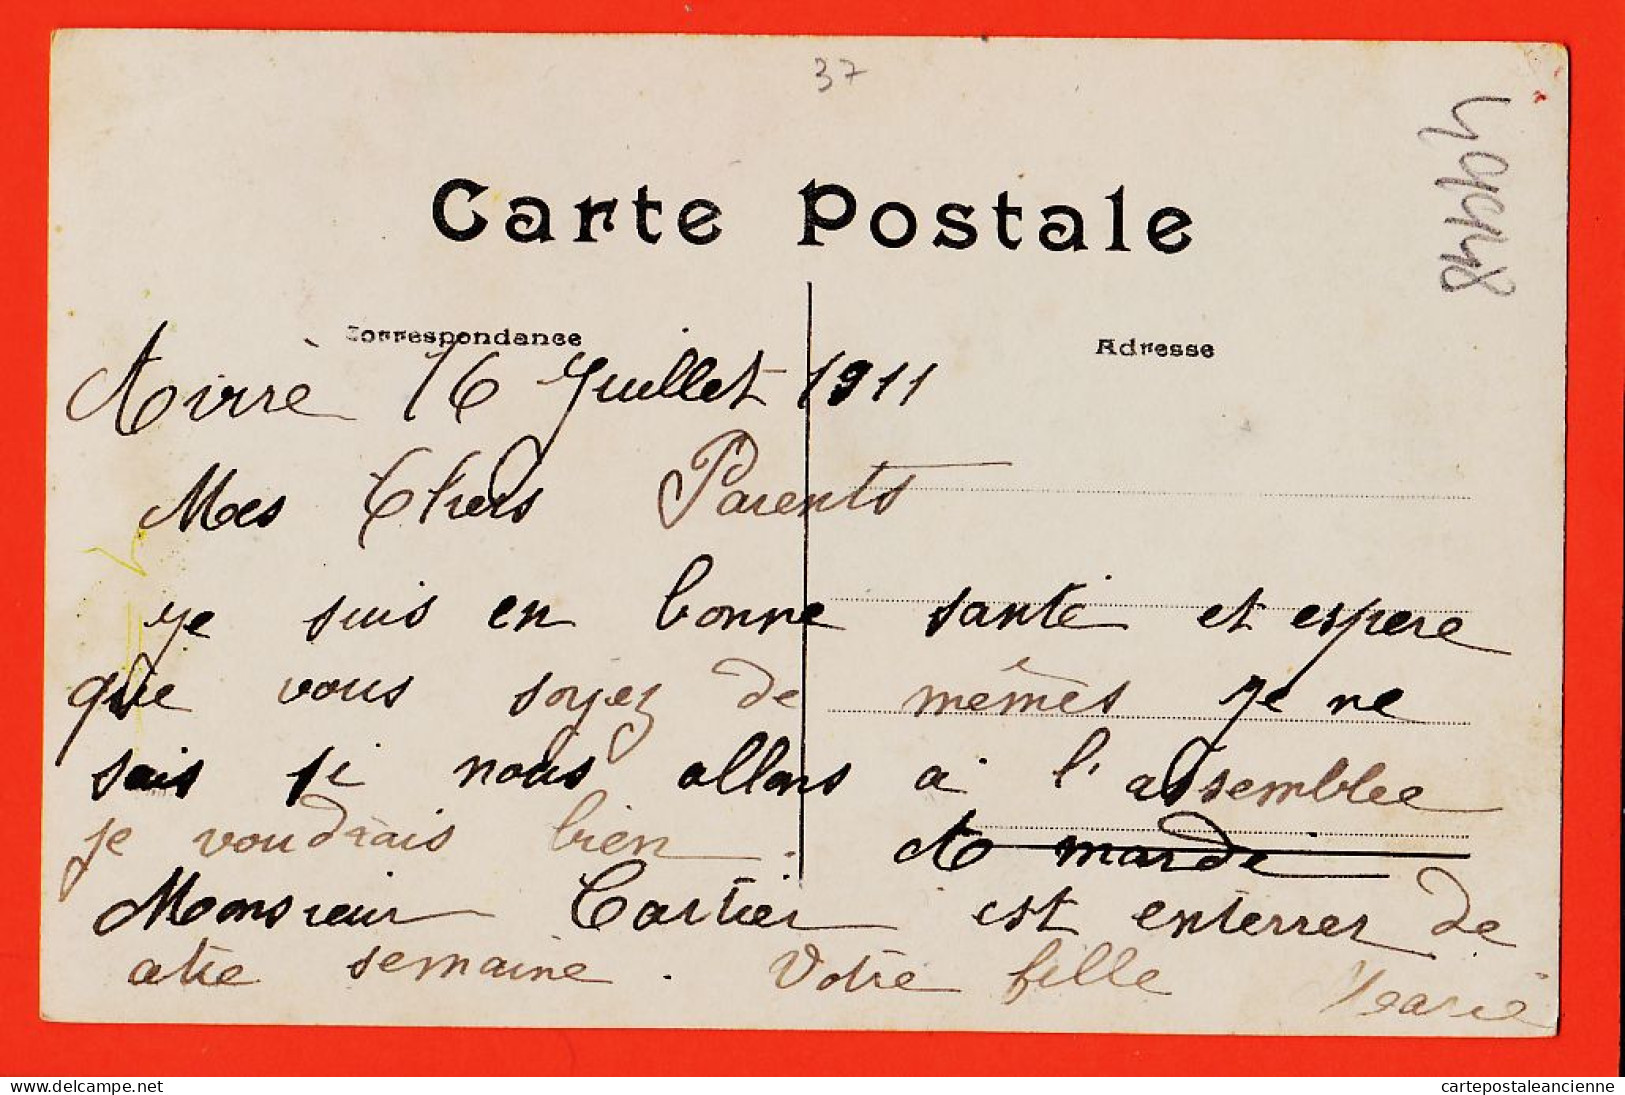 37
Carte Postale
Correspondance
Adresse
Avirré 16 Juillet 1911
Mes Chers Parents
je suis en bonne santé et espere
que vous soyez de mêmes je ne
sais si nous allons a l'assemblee
je voudrais bien. A mardi
Monsieur Cartier est enterrer de
cette semaine. Votre fille Marie
cartepostaleancienne